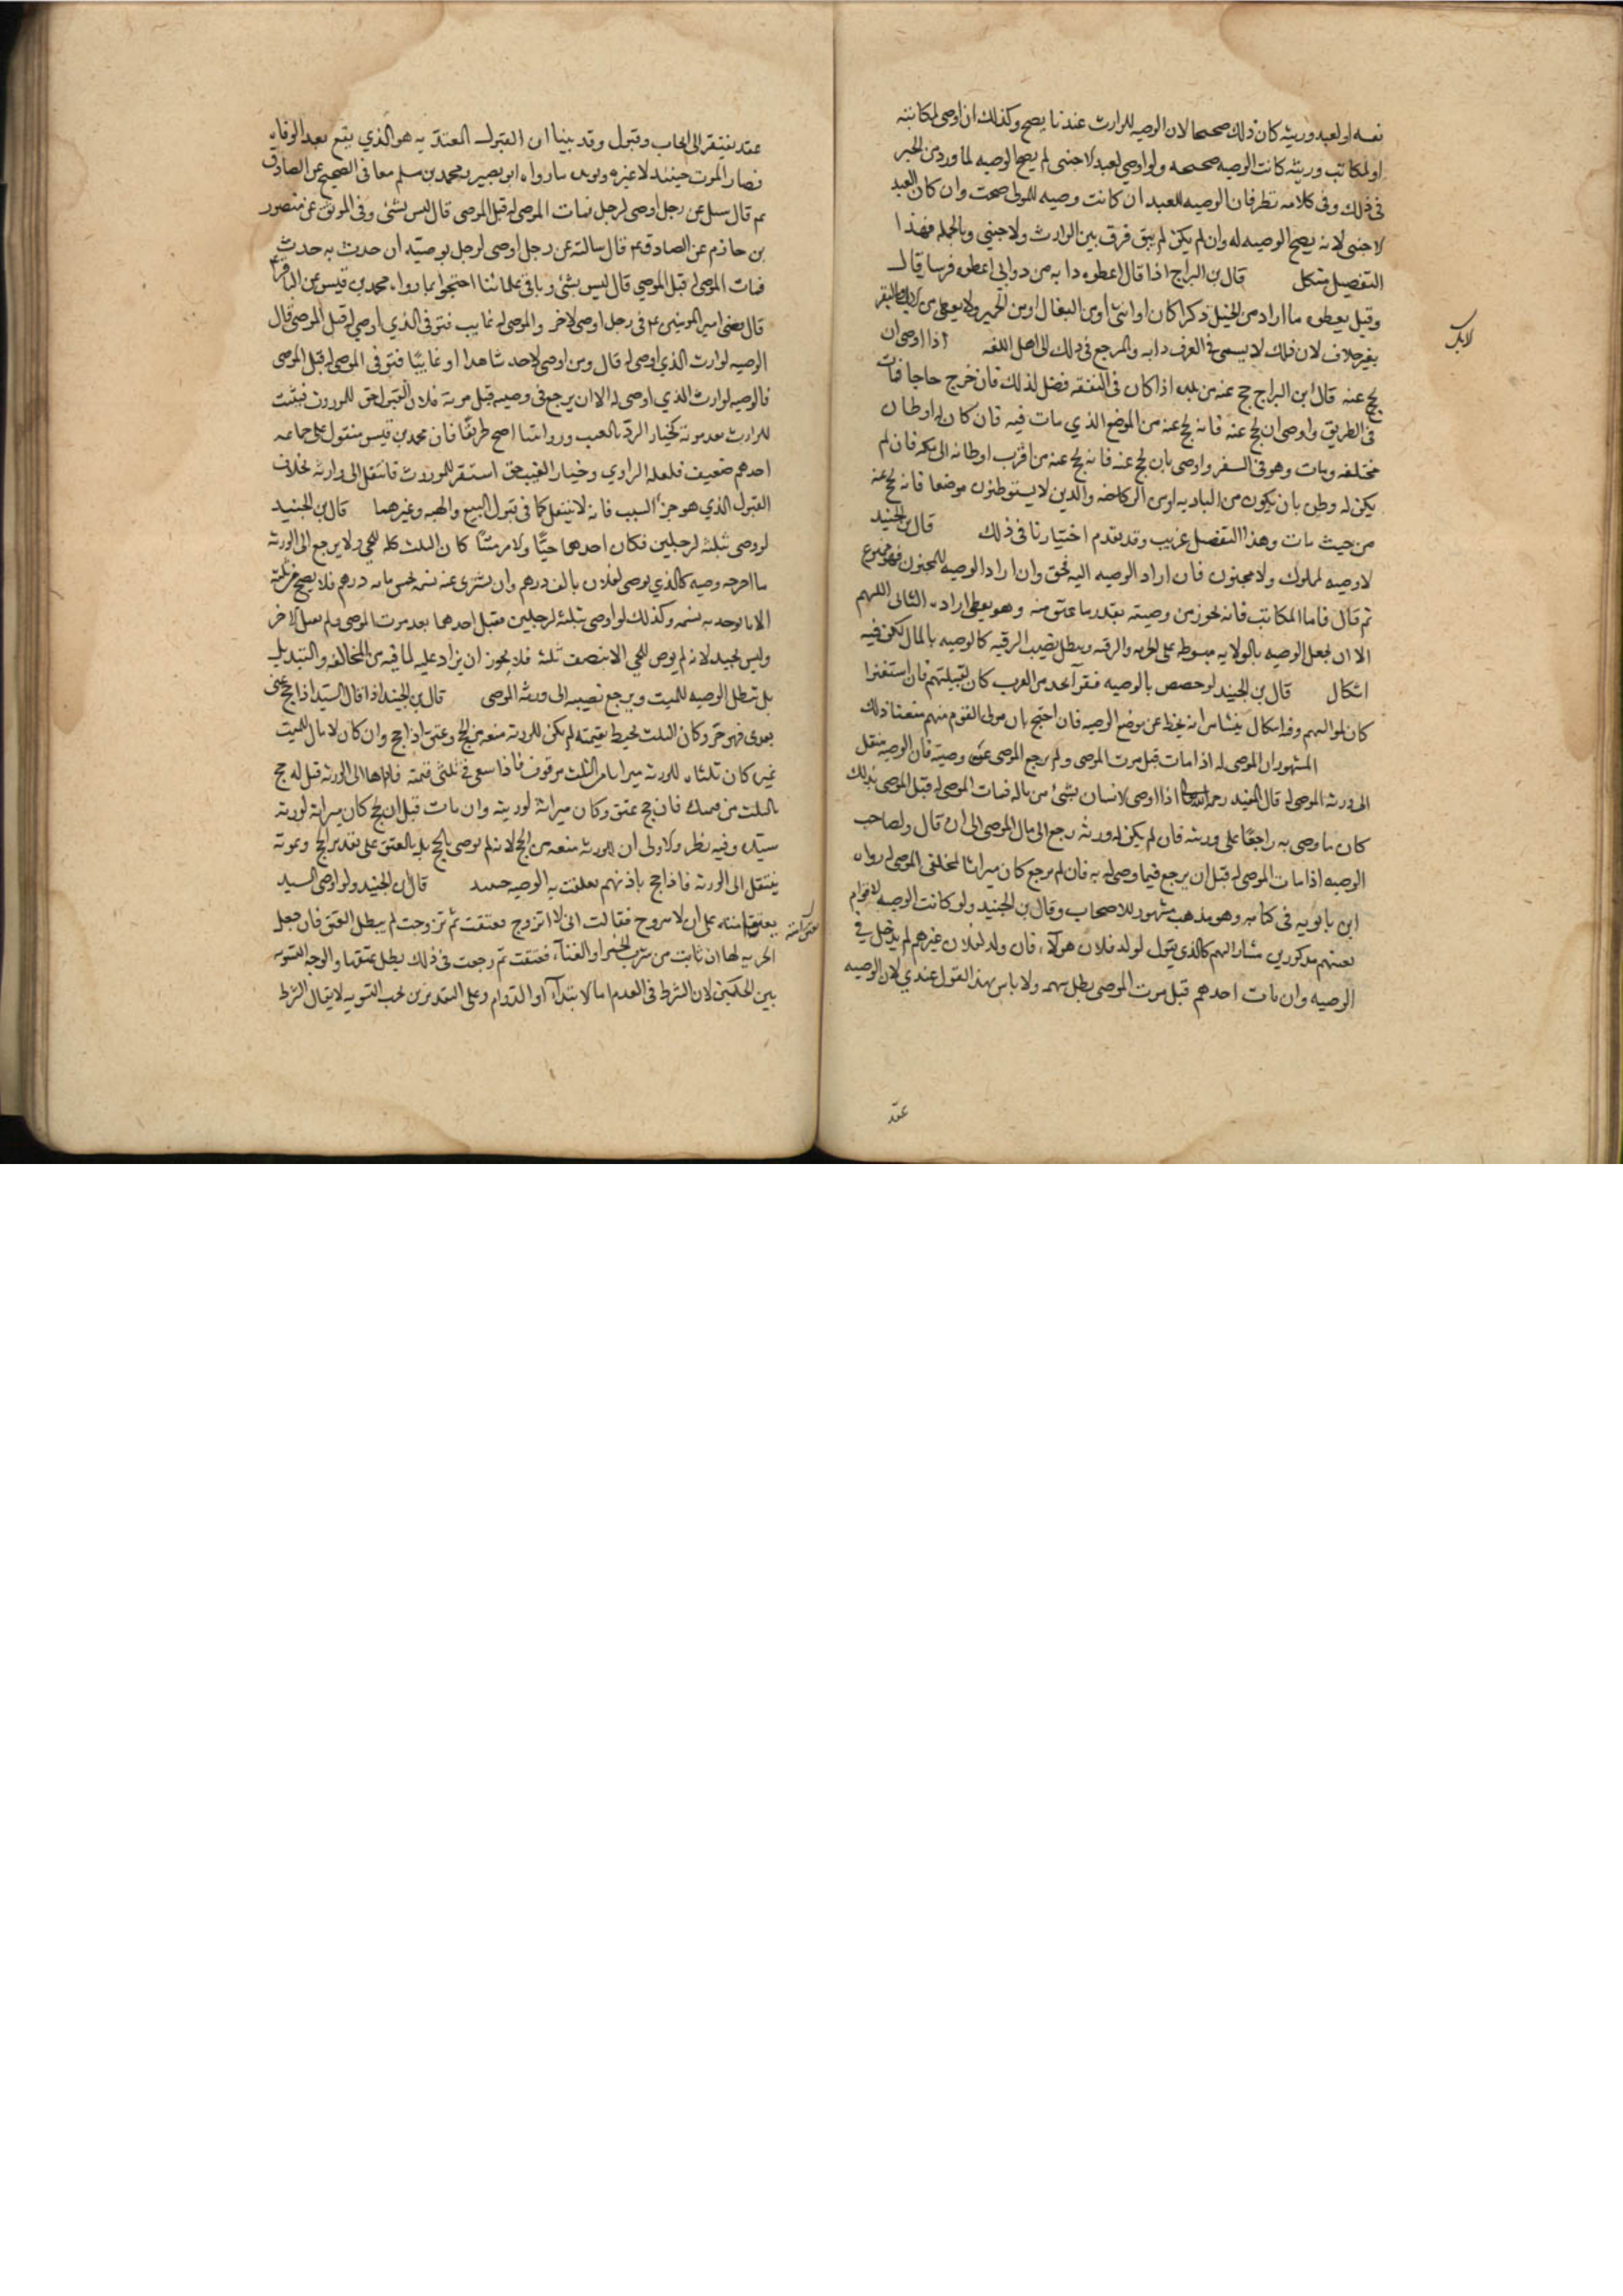 نفسه او لعبد وريثه كان ذلك صحيحا لان الوصيه للوارث عندنا يصح وكذلك ان اوصى لمكاتبته
او لمكاتب وريثه كانت الوصيه صحيحه ولو اوصى لعبد لاجنبى لم يصح الوصيه لما ورد من الخبر
فى ذلك وفى كلامه نظر فان الوصيه للعبد ان كانت وصيه للمولى صحت وان كان العبد
لاجنبى لانه يصح الوصيه له وان لم يكن لم يبق فرق بين الوارث ولاجنبي وبالجمله فهذا
التفصيل مشكل قال بن البراج اذا قال اعطوه دابه من دوابى اعطوه فرسا وقال
وقيل يعطوه ما اراد من الخيل ذكرا كان او انثى او من البغال او من الحمير ولا يعطى من لابل والبقر
لابل
بغير خلاف لان ذلك لا يسمى فى العرف دابه والمرجع فى ذلك الى اهل اللغه اذا اوصى ان
يحج عنه قال ابن البراج حج عنه من بلده اذا كان فى النفقه فضل لذلك فان خرج حاجا فمات
فى الطريق واوصى ان يحج عنه فانه يحج عنه من الموضع الذي مات فيه فان كان له اوطان
مختلفه ومات وهو فى السفر واوصى بان يحج عنه فانه يحج عنه من اقرب اوطانه الى مكه فان لم
يكن له وطن بان يكون من الباديه او من الركاضه والذين لا يستوطنون موضعا فانه يحج عنه
من حيث مات وهذا التفصيل غريب وقد تقدم اختيارنا فى ذلك قال بن الجنيد
لا وصيه لمملوك ولا مجنون فان اراد الوصيه اليه فحق وان اراد الوصيه للمجنون فهو ممنوع
ثم قال فاما المكاتب فانه يجوز من وصيته بقدر ما عتق منه وهو يعطى اراده الثانى اللهم
الا ان يجعل الوصيه بالولايه مبسوطه على الحريه والرقيه ويبطل نصيب الرقيه كالوصيه بالمال لكن فيه
اشكال قال بن الجنيد لو خصص بالوصيه فقرآ احد من العرب كان لقبيلتهم فان استغنوا
كان لمواليهم وفيه اشكال ينشا من انه يخط عن موضع الوصيه فان احتج بان مولى القوم منهم منعنا ذلك
المشهور ان الموصى له اذا مات قبل موت الموصى ولم يرجع الموصى عن وصيته فان الوصيه تنتقل
الى ورثه الموصى له قال المفيد رحمه الله اذا اوصى لانسان بشئ من ماله فمات الموصى له قبل الموصى بذلك
كان ما وصى به راجعًا على ورثته فان لم يكن له ورثه رجع الى مال الموصى الى ان قال ولصاحب
الوصيه اذا مات الموصى له قبل ان يرجع فيما وصى له به فان لم يرجع كان ميراثا لمخلفى الموصى له رواه
ابن بابويه فى كتابه وهو مذهب مشهور للاصحاب وقال بن الجنيد ولو كانت الوصيه لاقوام
بعينهم مذكورين مشار اليهم كالذى يقول لولد فلان هولآء فان ولد لفلان غيرهم لم يدخل في
الوصيه وان مات احدهم قبل موت الموصى بطل سهمه ولا باس بهذا القول عندي لان الوصيه
عقد
عقد يفتقر الى ايجاب وقبول وقد بينا ان القبول المعتد به هو الذي يقع بعد الوفاه
فصار الموت حينئذ لا غيره ويويده ما رواه ابو بصير ومحمد بن مسلم معا فى الصحيح عن الصادق
عم قال سئل عن رجل اوصى لرجل فمات الموصى له قبل الموصى قال ليس بشئ وفى الموثق عن منصور
بن حازم عن الصادق عم قال سالته عن رجل اوصى لرجل بوصيته ان حدث به حدث
فمات الموصى له قبل الموصي قال ليس بشئ وباقى علمائنا احتجوا بما رواه محمد بن قيس عن الباقر عم
قال قضى امير المومنين عم فى رجل اوصى لاخر والموصى له غايب فتوفى الذي اوصى له قبل الموصى قال
الوصيه لوارث الذي اوصى له قال ومن اوصى لاحد شاهدا او غايبًا فتوفى الموصى له قبل الموصى
فالوصيه لوارث الذي اوصى له الا ان يرجع فى وصيته قبل موته فلان القبول حق للموروث فيثبت
للوارث بعد موته كخيار الردّ بالعيب وروايتنا اصح طريقًا فان محمد بن قيس منقول على جماعه
احدهم ضعيف فلعله الراوي وخيار العيب حق استقر للموروث فانتقل الى وارثه بخلاف
القبول الذي هو جزء السبب فانه لا ينتقل كما فى قبول البيع والهبه وغيرهما قال بن الجنيد
لو وصى بثلثه لرجلين فكان احدهما حيًا ولاخر ميتًا كان الثلث كله للحى ولا يرجع الى الورثه
ما اخرجه وصيه كالذي يوصى لفلان بالف درهم وان يشترى عنه نسمه بخمس مايه درهم فلا يصح من ثلثه
الا ما يوجد به نسمه وكذلك لو اوصى بثلثه لرجلين فقبل احدهما بعد موت الموصى ولم يقبل لاخر
وليس بجيد لانه لم يوص للحى الا بنصف ثلثه فلا يجوز ان يزاد عليه لما فيه من المخالفه والتبديل
بل تبطل الوصيه للميت ويرجع نصيبه الى ورثه الموصى قال بن الجنيد اذا قال السيد اذا حج عنى
بعدى فهو حر وكان الثلث يحيط بقيمته لم يكن للورثه منعه من الحج وعتق اذا حج وان كان لا مال للميت
غيره كان ثلثاه للورثه ميراثا والثلث موقوف فاذا سعى فى ثلثى قيمته فاداها الى الورثه قيل له حج
بالثلث من قيمتك فان حج عتق وكان ميراثه لورثته وان مات قبل ان يحج كان ميراثه لورثه
سيده وفيه نظر ولاولى ان للورثه منعه من الحج لانه لم يوصى بالحج بل بالعتق على تقدير الحج وبموته
ينتقل الى الورثه فاذا حج باذنهم تعلقت به الوصيه حينئذ قال بن الجنيد ولو اوصى السيد
بعتق امته على ان لا تتزوج فقالت انى لا اتزوج فعتقت ثم تزوجت لم يبطل العتق فان جعل
بعتق امته
الحريه لها ان تابت من شرب الخمر او الغناء فعتقت ثم رجعت فى ذلك بطل عتقها والوجه التسويه
بين الحكمين لان الشرط فى العدم اما لابتدآء او الدوام وعلى التقديرين يجب التسويه لا يقال الشرط